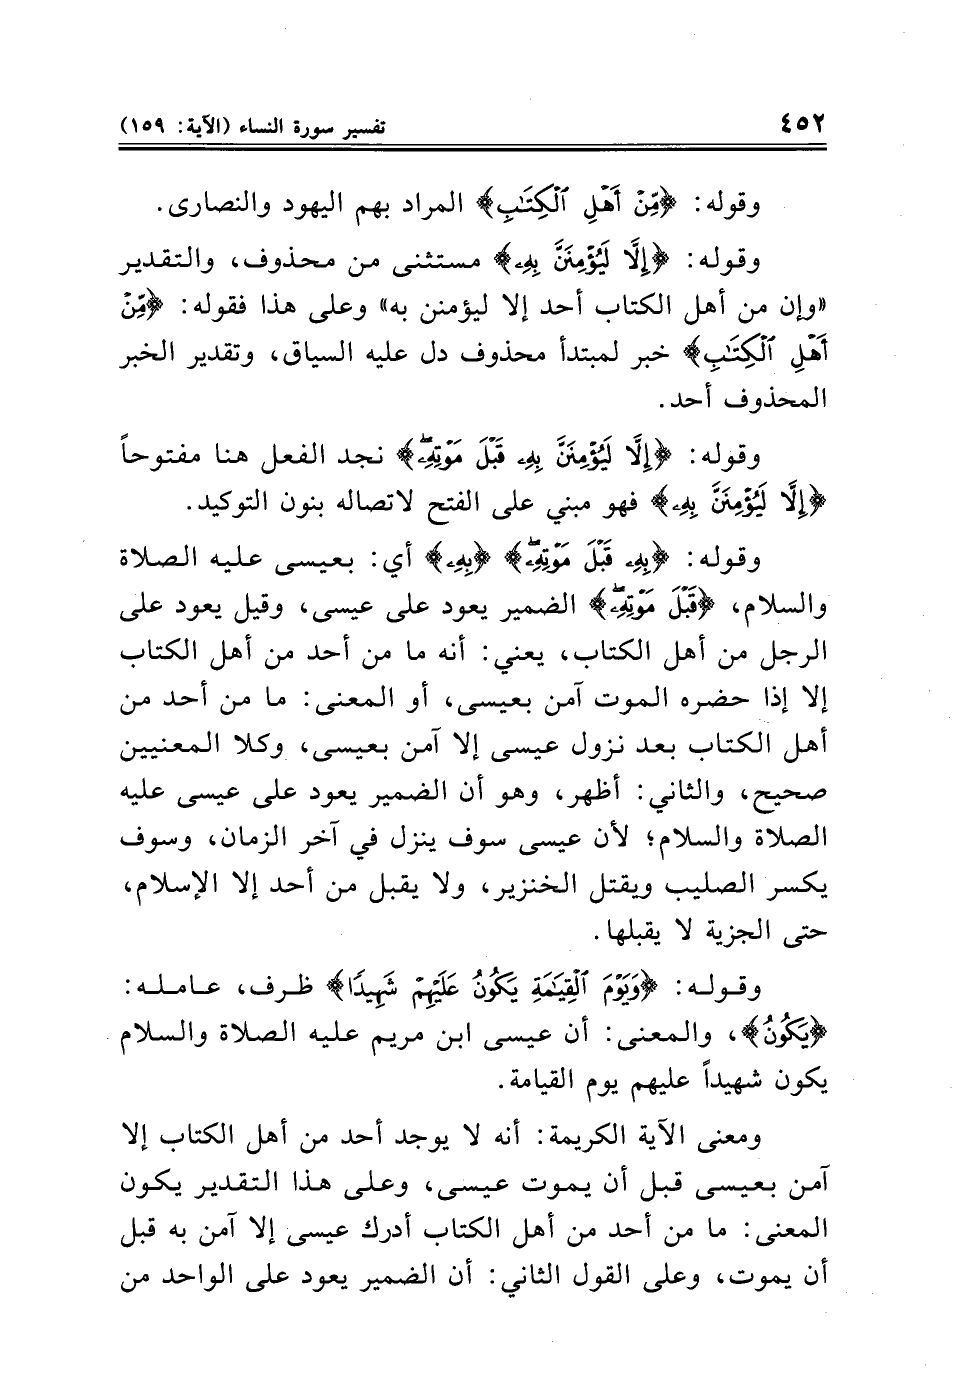 ٤٥٢ تفسير سورة النساء (الآية: ١٥٩)
وقوله: ﴿مِّنْ أَهْلِ ٱلْكِتَٰبِ﴾ المراد بهم اليهود والنصارى.
وقوله: ﴿إِلَّا لَيُؤْمِنَنَّ بِهِۦ﴾ مستثنى من محذوف، والتقدير
«وإن من أهل الكتاب أحد إلا ليؤمنن به» وعلى هذا فقوله: ﴿مِّنْ
أَهْلِ ٱلْكِتَٰبِ﴾ خبر لمبتدأ محذوف دل عليه السياق، وتقدير الخبر
المحذوف أحد.
وقوله: ﴿إِلَّا لَيُؤْمِنَنَّ بِهِۦ قَبْلَ مَوْتِهِۦۖ﴾ نجد الفعل هنا مفتوحاً
﴿إِلَّا لَيُؤْمِنَنَّ بِهِۦ﴾ فهو مبني على الفتح لاتصاله بنون التوكيد.
وقوله: ﴿بِهِۦ قَبْلَ مَوْتِهِۦۖ﴾ ﴿بِهِۦ﴾ أي: بعيسى عليه الصلاة
والسلام، ﴿قَبْلَ مَوْتِهِۦۖ﴾ الضمير يعود على عيسى، وقيل يعود على
الرجل من أهل الكتاب، يعني: أنه ما من أحد من أهل الكتاب
إلا إذا حضره الموت آمن بعيسى، أو المعنى: ما من أحد من
أهل الكتاب بعد نزول عيسى إلا آمن بعيسى، وكلا المعنيين
صحيح، والثاني: أظهر، وهو أن الضمير يعود على عيسى عليه
الصلاة والسلام؛ لأن عيسى سوف ينزل في آخر الزمان، وسوف
يكسر الصليب ويقتل الخنزير، ولا يقبل من أحد إلا الإسلام،
حتى الجزية لا يقبلها.
وقوله: ﴿وَيَوْمَ ٱلْقِيَٰمَةِ يَكُونُ عَلَيْهِمْ شَهِيدًا﴾ ظرف، عامله:
﴿يَكُونُ﴾، والمعنى: أن عيسى ابن مريم عليه الصلاة والسلام
يكون شهيداً عليهم يوم القيامة.
ومعنى الآية الكريمة: أنه لا يوجد أحد من أهل الكتاب إلا
آمن بعيسى قبل أن يموت عيسى، وعلى هذا التقدير يكون
المعنى: ما من أحد من أهل الكتاب أدرك عيسى إلا آمن به قبل
أن يموت، وعلى القول الثاني: أن الضمير يعود على الواحد من